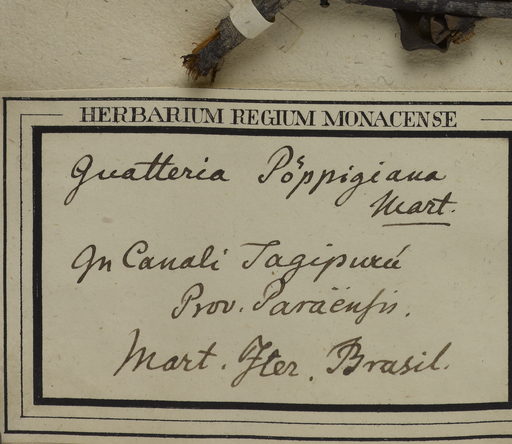 HERBARIUM REGIUM MONACENSE
Guatteria Pöppigiana
Mart.
In Canali Tagipurú
Prov. Paraënsis.
Mart. Iter. Brasil.